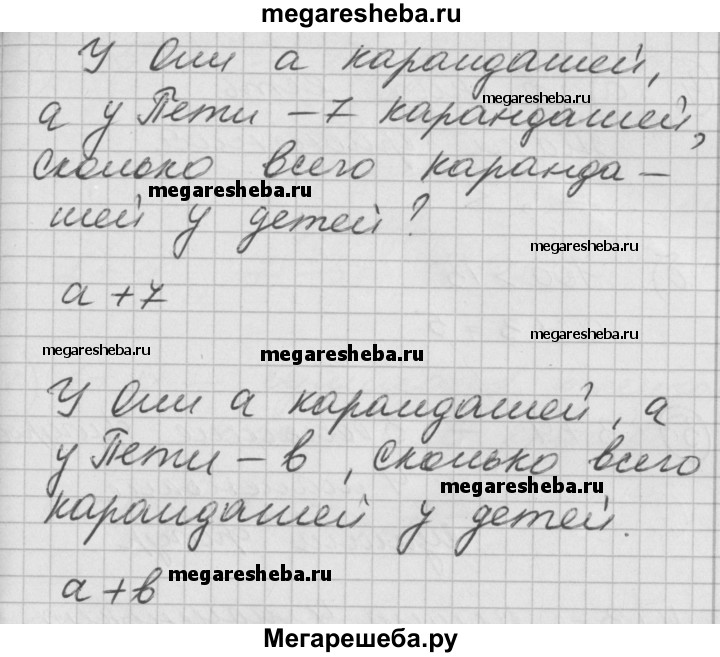 megaresheba.ru
У Оли а карандашей,
megaresheba.ru
а у Пети – 7 карандашей,
сколько всего каранда –
megaresheba.ru
шей у детей?
megaresheba.ru
а + 7
megaresheba.ru
megaresheba.ru
megaresheba.ru
У Оли а карандашей, а
у Пети – в, сколько всего
megaresheba.ru
карандашей у детей.
а + в
megaresheba.ru
Мегарешеба.ру